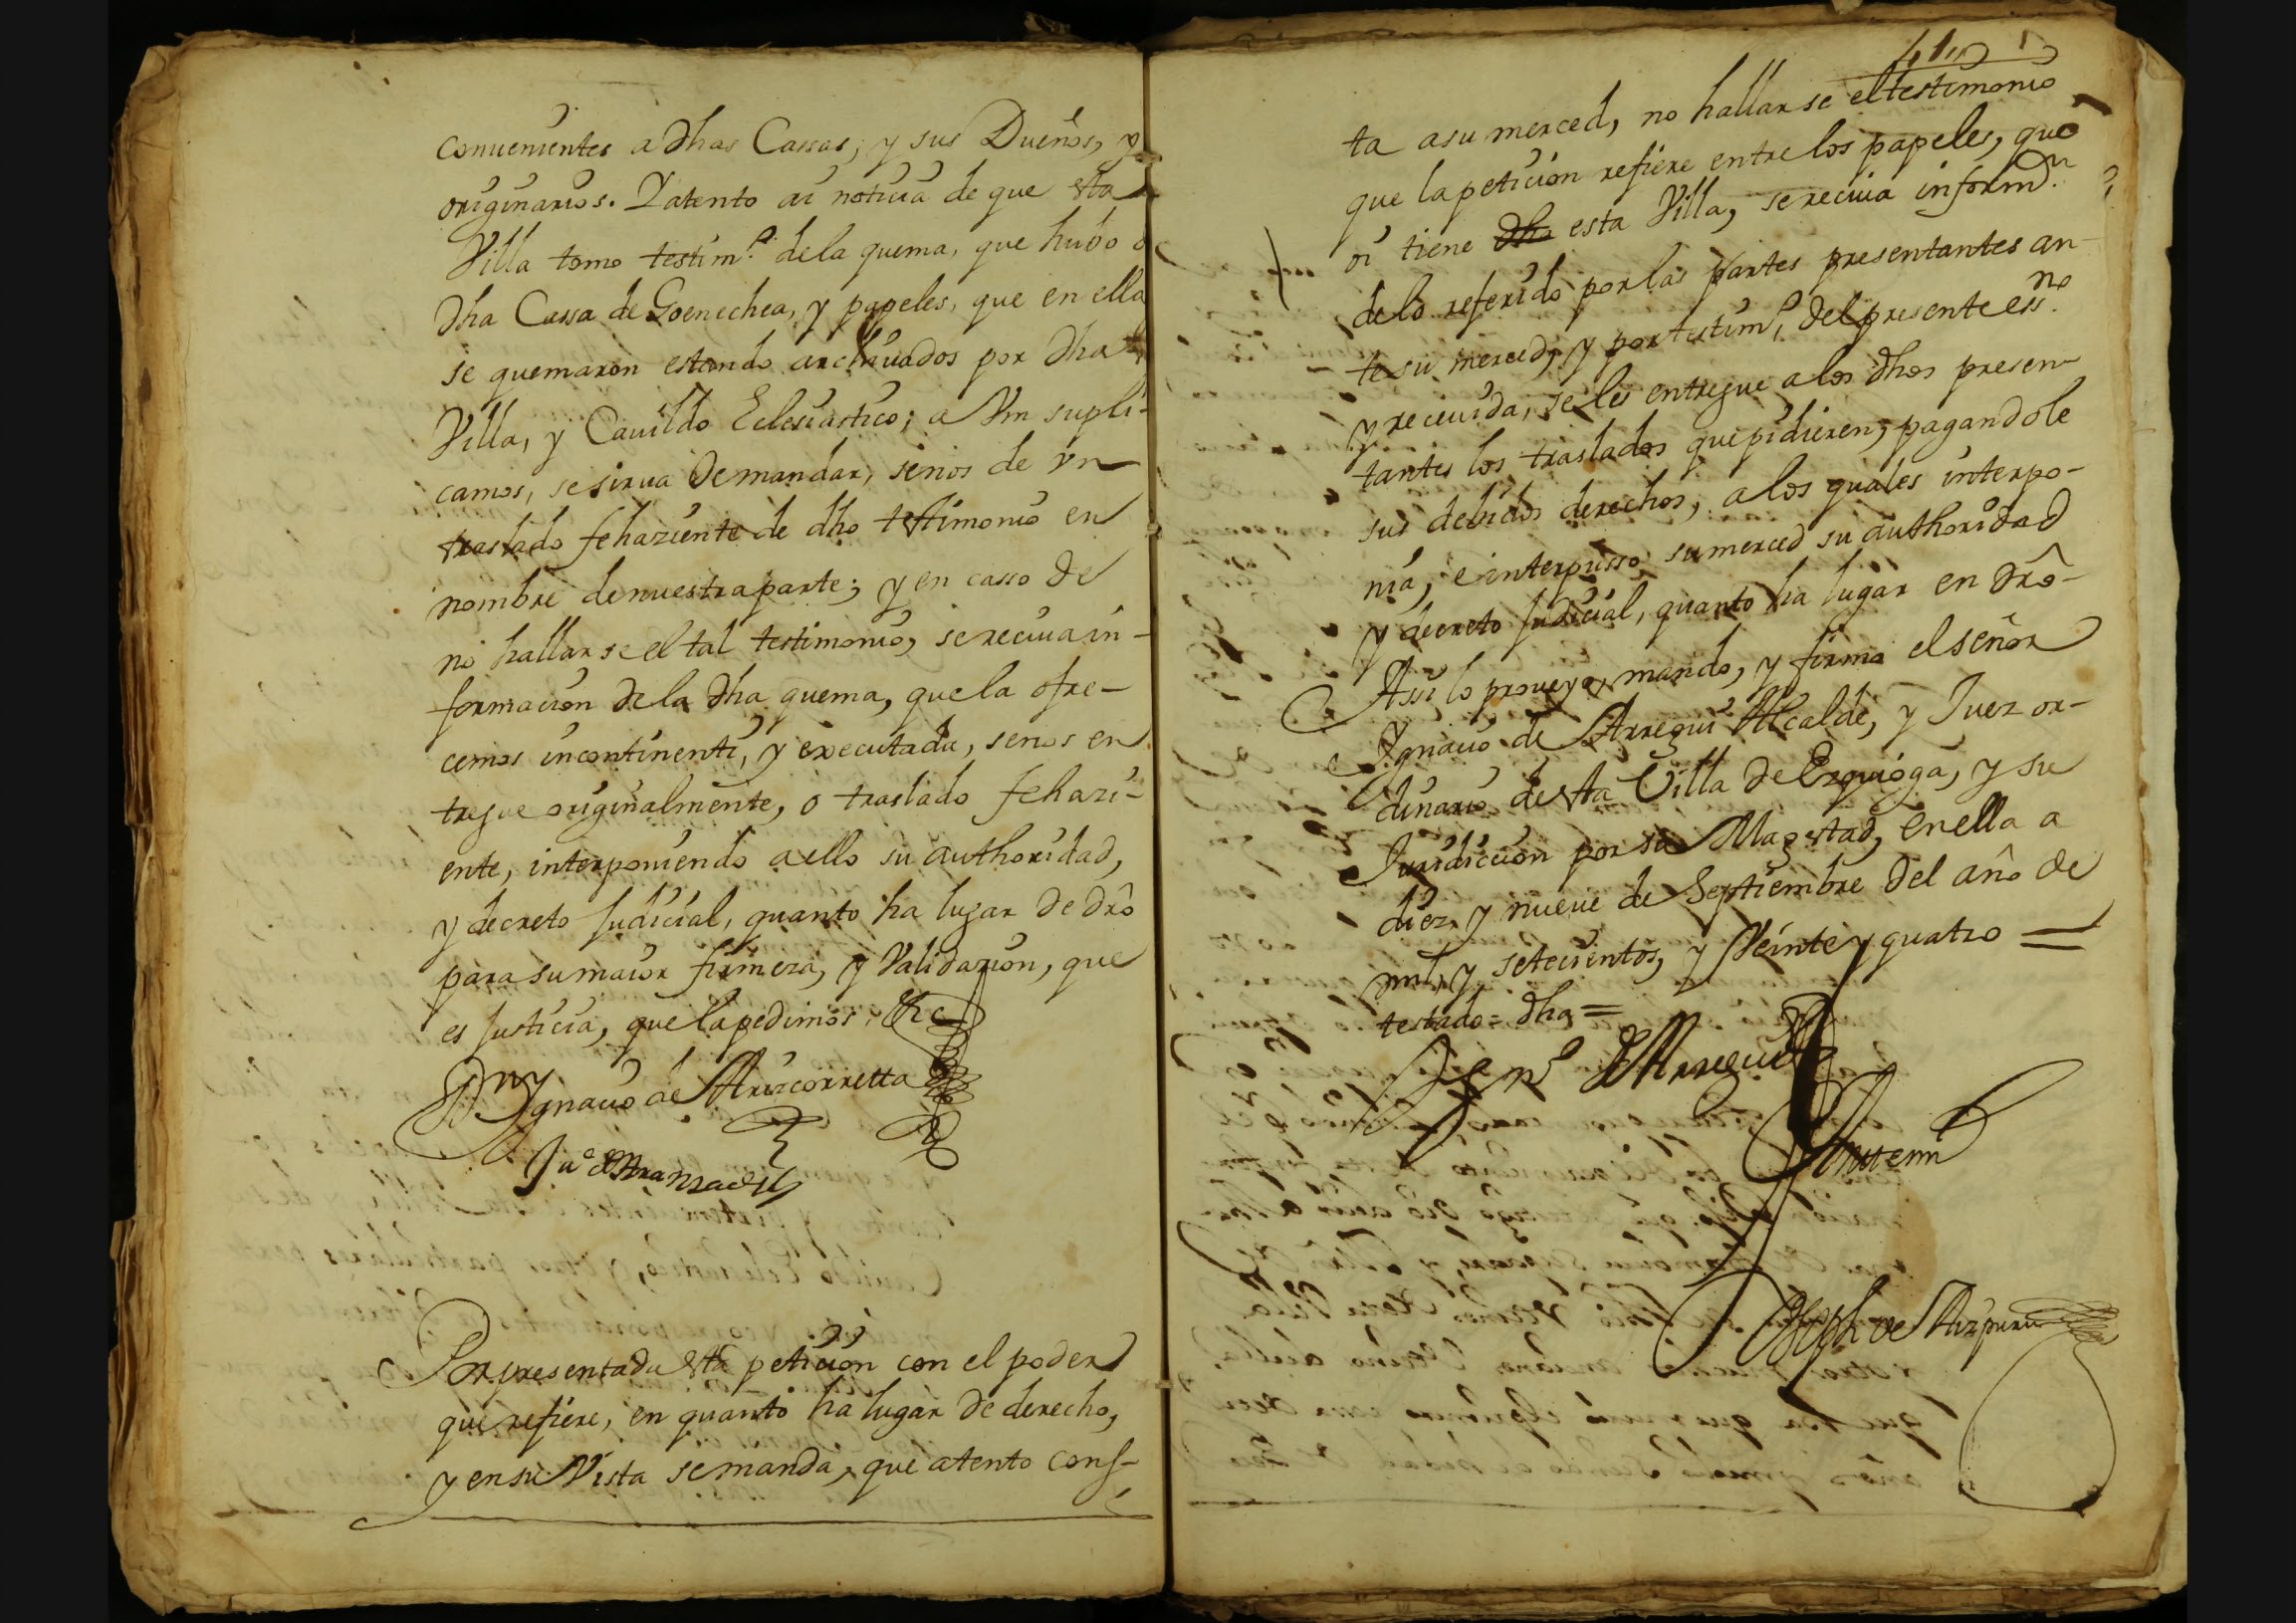 conuenientes a dhas Cassas, y sus Dueños, y
originarios. Y atento ai noticia de que esta
Villa tomo testim.º de la quema, que hubo
dha Cassa de Goenechea, y papeles, que en ella
se quemaron estando archiuados por dha
Villa, y Cauildo Eclesiastico; a Vm supli-
camos, se sirua de mandar, se nos de vn
traslado fehaziente de dho testimonio en
nombre de nuestra parte; y en casso de
no hallarse el tal testimonio, se reciua in-
formacion de la dha quema, que la ofre-
cemos incontinenti, y executada, se nos en
tregue originalmente, ó traslado fehazi-
ente, interponiendo a ello su authoridad,
y decreto Judicial, quanto ha lugar de drô
para su maior firmeza, y Validazion, que
es Justicia, que la pedimos, &c
Dn Ygnacio de Arizcorretta
Juº de Aranzadi
Por presentada esta peticion con el poder
que refiere, en quanto ha lugar de derecho,
y en su Vista se manda, que atento cons-
ta a su merced, no hallarse el testimonio
que la peticion refiere entre los papeles, que
oi tiene dha esta Villa, se reciua informon
de lo referido por las partes presentantes an-
te su merced, y por testimº del presente essno
y receuida, se les entregue a los dhos presen-
tantes los traslados que pidieren, pagandole
sus debidos derechos, a los quales interpo-
nia, e interpusso su merced su authoridad
y decreto Judicial, quanto ha lugar en drô-
Assi lo proueyo, mando, y firmo el señor
Ygnacio de Arregui Alcalde, y Juez or-
dinario de esta Villa de Ezquioga, y su
Juridiccion por su Magestad, en ella a
diez y nueue de Septiembre del año de
mil, y setecientos, y Veinte y quatro =
testado = dha =
de Arregui
Ante mi
Joseph de Aizpuru